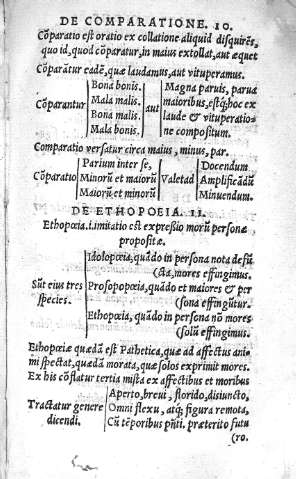 DE COMPARATIONE. 10.
Cõparatio est oratio ex collatione aliquid disquirẽs,
quo id, quod cõparatur, in maius extollat, aut æquet
Cõparãtur eadẽ, quæ laudamus, aut vituperamus.
Cõparantur
Bona bonis.
Mala malis.
Bona malis.
Mala bonis.
aut
Magna paruis, parua
maioribus, estq́; hoc ex
laude & vituperatio-
ne compositum.
Comparatio versatur circa maius, minus, par.
Cõparatio
Parium inter se,
Minorũ et maiorũ
Maiorũ et minorũ
Valetad
Docendum
Amplificãdũ
Minuendum.
DE ETHOPOEIA. 11.
Ethopœia .i. imitatio est expressio morũ personæ
propositæ.
Sũt eius tres
species.
Idolopœia, quãdo in persona nota defũ
(cta, mores effingimus.
Prosopopœia, quãdo et maiores & per
(sona effingũtur.
Ethopœia, quãdo in persona nõ mores
(solũ effingimus.
Ethopœiæ quædã est Pathetica, quæ ad affectus ani-
mi spectat, quædã morata, quæ solos exprimit mores.
Ex his cõflatur tertia mista ex affectibus et moribus
Tractatur genere
dicendi.
Aperto, breui, florido, disiuncto,
Omni flexu, atq; figura remota,
Cũ tẽporibus pñti. præterito futu
(ro.